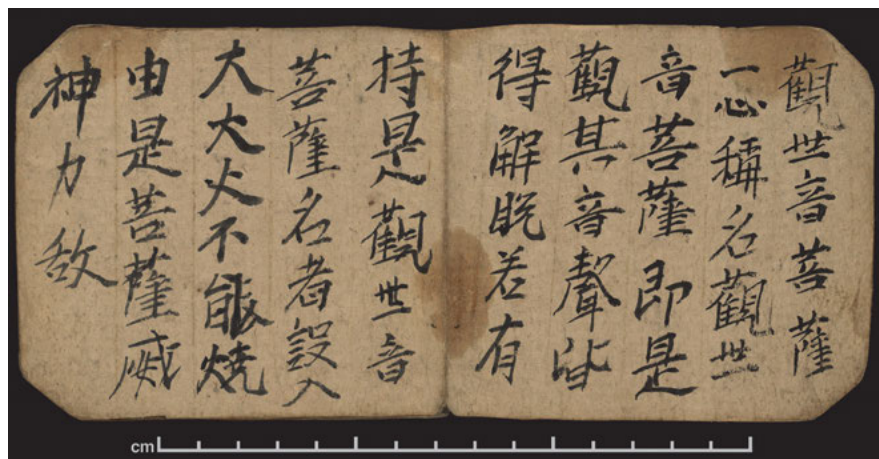 觀世音菩薩
一心稱名觀世
音菩薩即是
觀其音聲皆
得解脱若有
持是觀世音
菩薩名者設入
大大火不能焼
由是菩薩威
神力故
cm